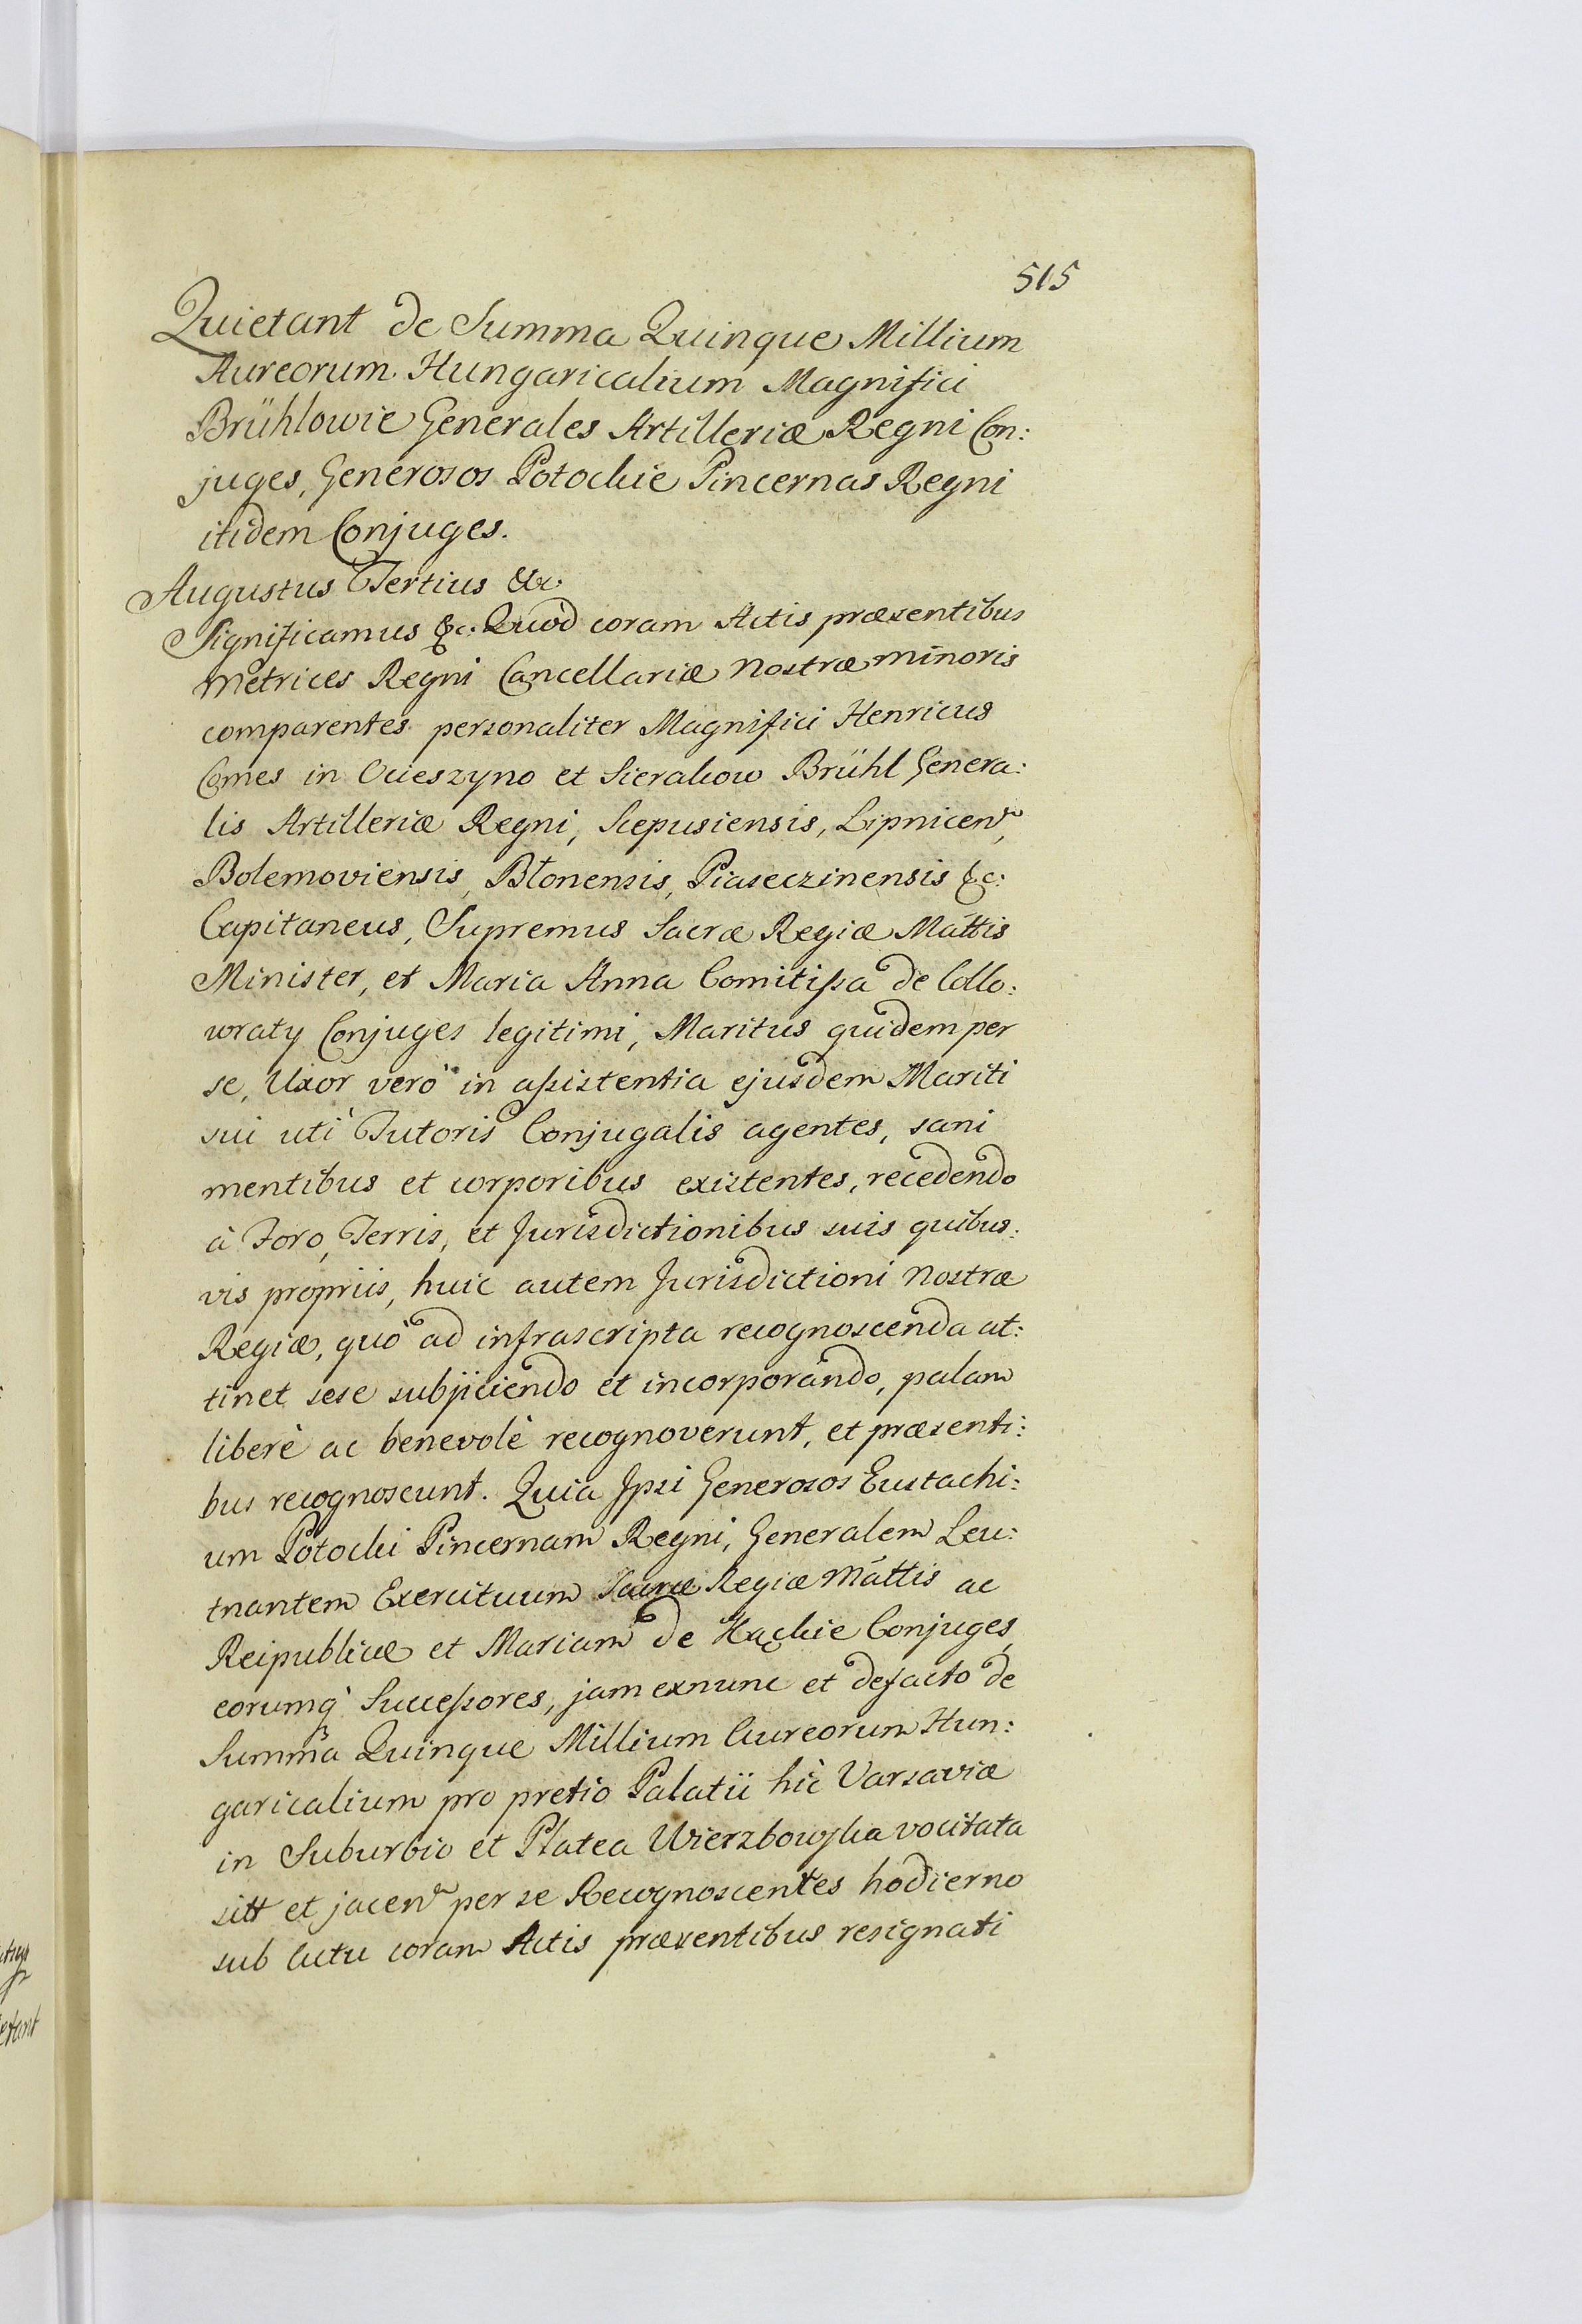 515
Quietant de Summa Quinque Millium
Aureorum Hungaricalium Magnifici
Brühlowie Generales Artilleriæ Regni Con:
juges, Generosos Potockie Pincernas Regni
itidem Conjuges.
Augustus Tertius &c.
Significamus &c: Quod coram Actis præsentibus
Metrices Regni Cancellariæ Nostræ Minoris
comparentes personaliter Magnifici Henricus
Comes in Ocieszyno et Sierakow Brühl Genera:
lis Artilleriæ Regni, Scepusiensis, Lipnicen,
Bolemoviensis, Błonensis, Piaseczinensis &c:
Capitaneus, Supremus Sacræ Regiæ Mattis
Minister, et Maria Anna Comitissa de Collo:
wraty Conjuges legitimi, Maritus quidem per
se, Uxor verò in assistentia ejusdem Mariti
sui uti Tutoris Conjugalis agentes, sani
mentibus et corporibus existentes, recedendo
à Foro, Terris, et Jurisdictionibus suis quibus:
vis propriis, huic autem Jurisdictioni Nostræ
Regiæ, quò ad infrascripta recognoscenda at:
tinet sese subjiciendo et incorporando, palam
liberè ac benevolè recognoverunt, et præsenti:
bus recognoscunt. Quia Ipsi Generosos Eustachi:
um Potocki Pincernam Regni, Generalem Leu:
tnantem Exercituum Sacræ Regiæ Mattis ac
Reipublicæ et Mariam de Kąckie Conjuges,
eorumq Successores, jam exnunc et defacto de
Summa Quinque Millium Aureorum Hun:
garicalium pro pretio Palatii hic Varsaviæ
in Suburbio et Platea Wierzbowska vocitata
sitt et jacen per se Recognoscentes hodierno
sub Actu coram Actis præsentibus resignati